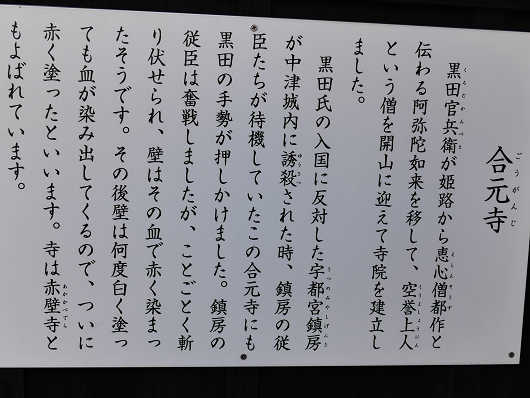 合元寺
ごうがんじ
黒田官兵衛が姫路から恵心僧都作と
くろだかんべえ
えしんそうず
伝わる阿弥陀如来を移して、空誉上人
という僧を開山に迎えて寺院を建立し
ました。
黒田氏の入国に反対した宇都宮鎮房
うつのみやしげふさ
が中津城内に誘殺された時、鎮房の従
ゆうさつ
臣たちが待機していたこの合元寺にも
黒田の手勢が押しかけました。鎮房の
従臣は奮戦しましたが、ことごとく斬
り伏せられ、壁はその血で赤く染まっ
たそうです。その後壁は何度白く塗っ
ても血が染み出してくるので、ついに
赤く塗ったといいます。寺は赤壁寺と
あかかべでら
もよばれています。